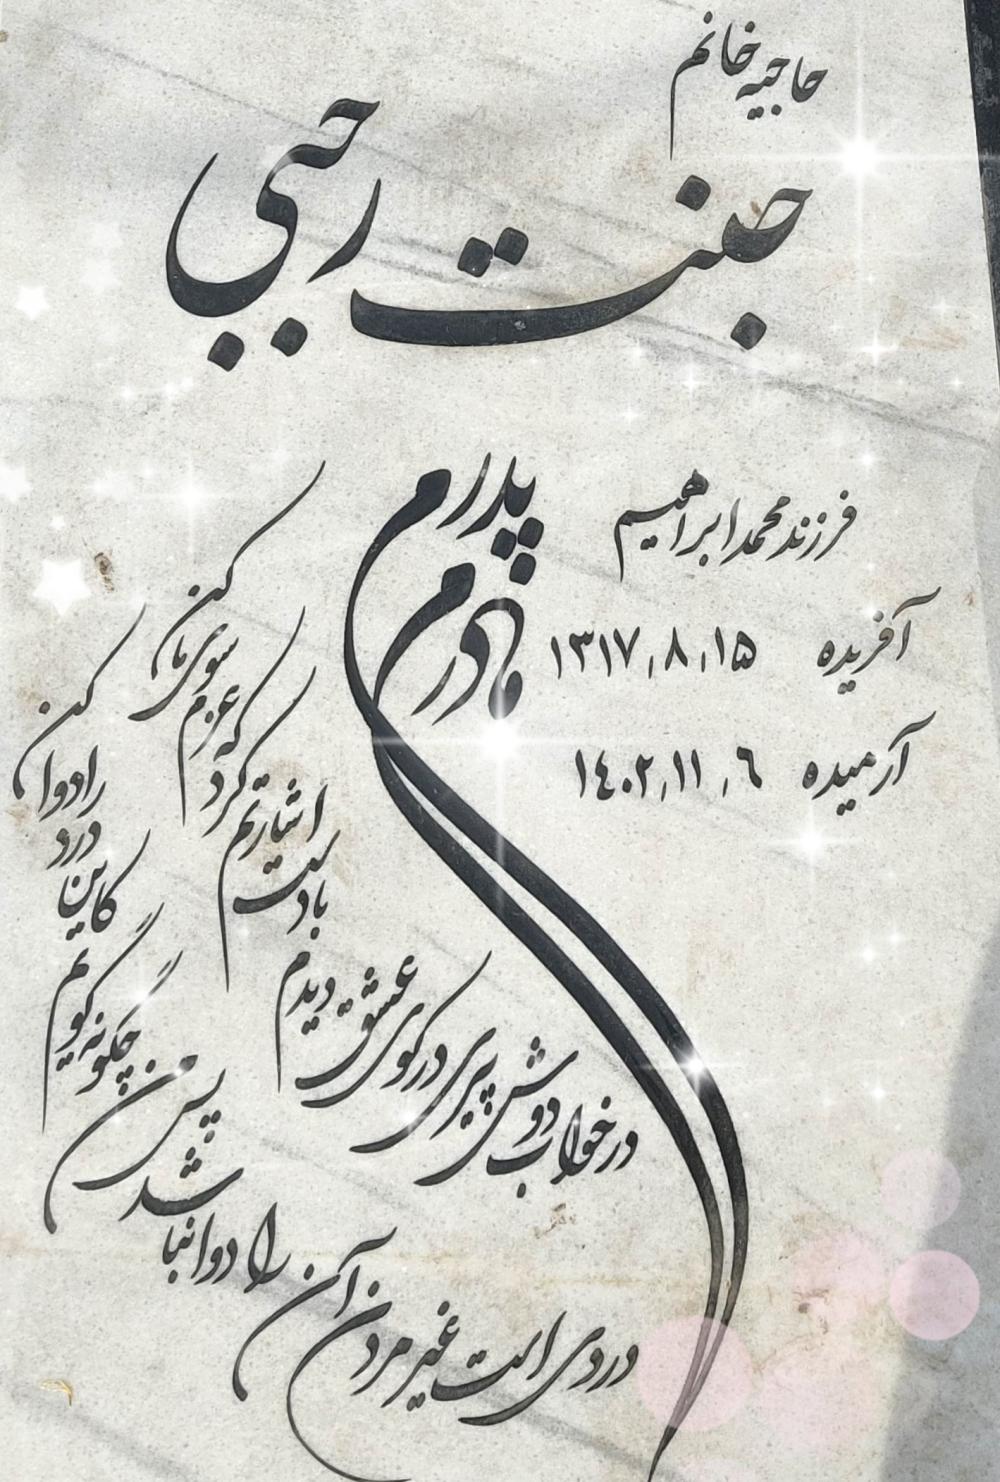 حاجیه خانم
جنت رجبی
فرزند محمد ابراهیم
آفریده ۱۳۱۷٫۸٫۱۵
آرمیده ۱۴۰۲٫۱۱٫۶
پدرم
مادرم
در خواب دوش پیری در کوی عشق دیدم
با دست اشارتم کرد که عزم سوی ما کن
دردی است غیر مردن آن را دوا نباشد
پس من چگونه گویم کاین درد را دوا کن